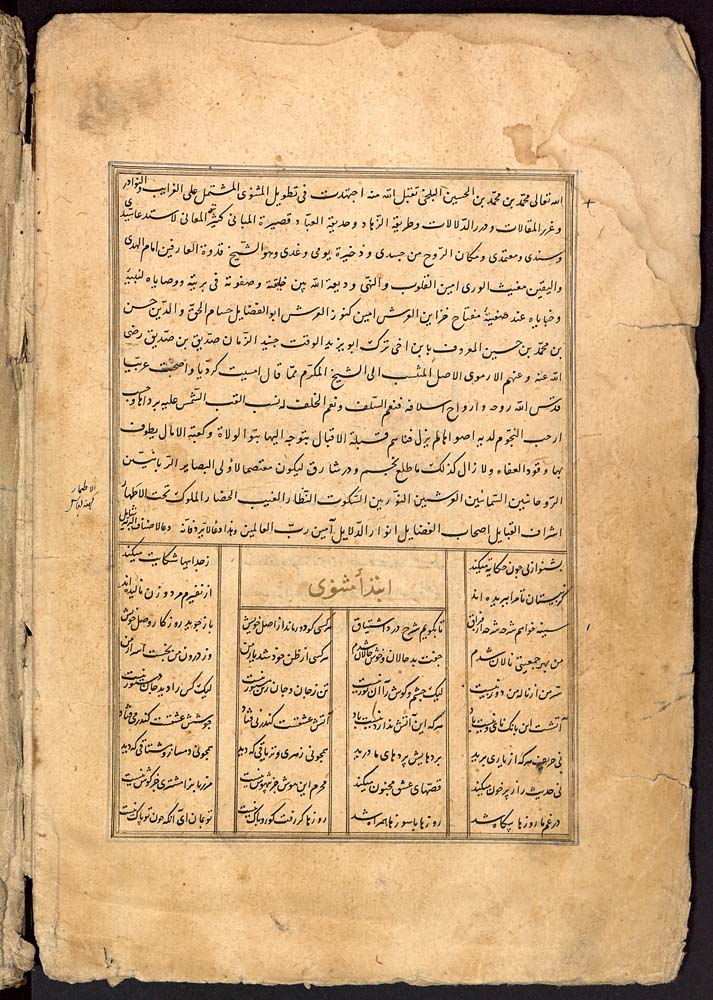 الله تعالی محمد بن محمد بن الحسین البلخی تقبل الله منه اجتهدت فی تطویل المثنوی المشتمل علی الغرایب والنوادر
و غرر المقالات و درر الدلالات و طریقة الزهاد و حدیقة العباد قصیرة المبانی کثیرة المعانی لاستدعا سیدی
و سندی و معتمدی و مکان الروح من جسدی و ذخیرة یومی و غدی و هو الشیخ قدوة العارفین امام الهدی
والیقین مغیث الوری امین القلوب والنهی و دیعة الله بین خلیقته و صفوته فی بریته و وصایاه لنبیه
و خبایاه عند صفیه مفتاح خزاین العرش امین کنوز العرش ابو الفضایل حسام الحق والدین حسن
بن محمد بن حسین المعروف بابن اخی ترک ابو یزید الوقت جنید الزمان صدیق بن صدیق رضی
الله عنه و عنهم الارموی الاصل المنتسب الی الشیخ المکرم بما قال امسیت کردیا و اصبحت عربیا
قدس الله روحه و ارواح اسلافه فنعم السلف و نعم الخلف له نسب القت الشمس علیه رداها و حسب
ارخت النجوم لدیه اصواها لم یزل فناءهم قبلة الاقبال یتوجه الیها بنو الولاة و کعبة الامال یطوف
بها وفود العفاه ولا زال کذلک ما طلع نجم و در شارق لیکون معتصما لاولی البصایر الربانیین
الروحانیین السمائیین العرشیین النوریین السکوت النظار الغیب الحضار الملوک تحت الاطمار
اشراف القبایل اصحاب الفضایل انوار الدلایل آمین رب العالمین و هذا دعا لا یرد فانه دعا لاصناف البریة شامل
الاطمار
ابتداء مثنوی
بشنو از نی چون حکایت میکند
از جداییها شکایت میکند
کز نیستان تا مرا ببریده اند
از نفیرم مرد و زن نالیده اند
سینه خواهم شرحه شرحه از فراق
تا بگویم شرح درد اشتیاق
هر کسی کو دور ماند از اصل خویش
باز جوید روزگار وصل خویش
من بهر جمعیتی نالان شدم
جفت بدحالان و خوش حالان شدم
هر کسی از ظن خود شد یار من
وز درون من نجست اسرار من
سر من از ناله من دور نیست
لیک چشم و گوش را آن نور نیست
تن ز جان و جان ز تن مستور نیست
لیک کس را دید جان دستور نیست
آتشست این بانک نای و نیست باد
هر که این آتش ندارد نیست باد
آتش عشقست کندر نی فتاد
جوشش عشقست کندر می فتاد
نی حریف هر که از یاری برید
پردهایش پردهای ما درید
همچو نی زهری و تریاقی که دید
همچو نی دمساز و مشتاقی که دید
نی حدیث راه پر خون میکند
قصهای عشق مجنون میکند
محرم این هوش جز بیهوش نیست
مر زبانرا مشتری جز گوش نیست
در غم ما روزها بیگاه شد
روزها با سوزها همراه شد
روزها گر رفت گو رو باک نیست
تو بمان ای آنکه چون تو پاک نیست